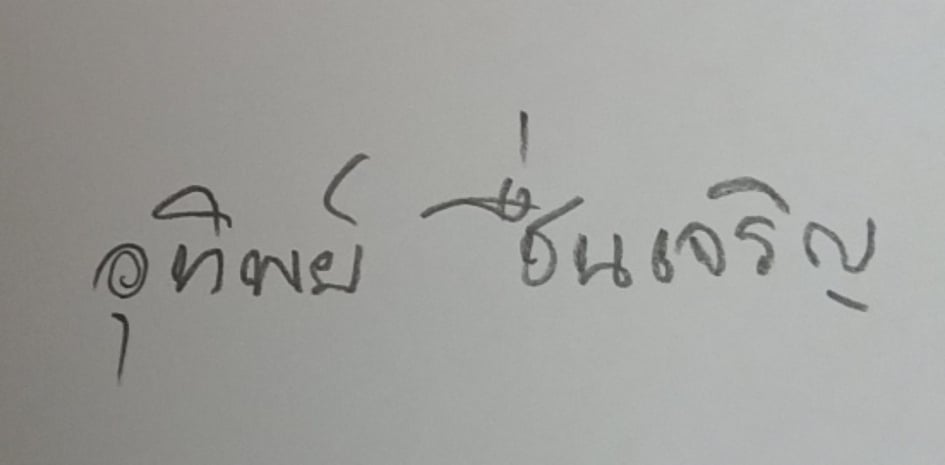 อุทิพย์ ชื่นเจริญ